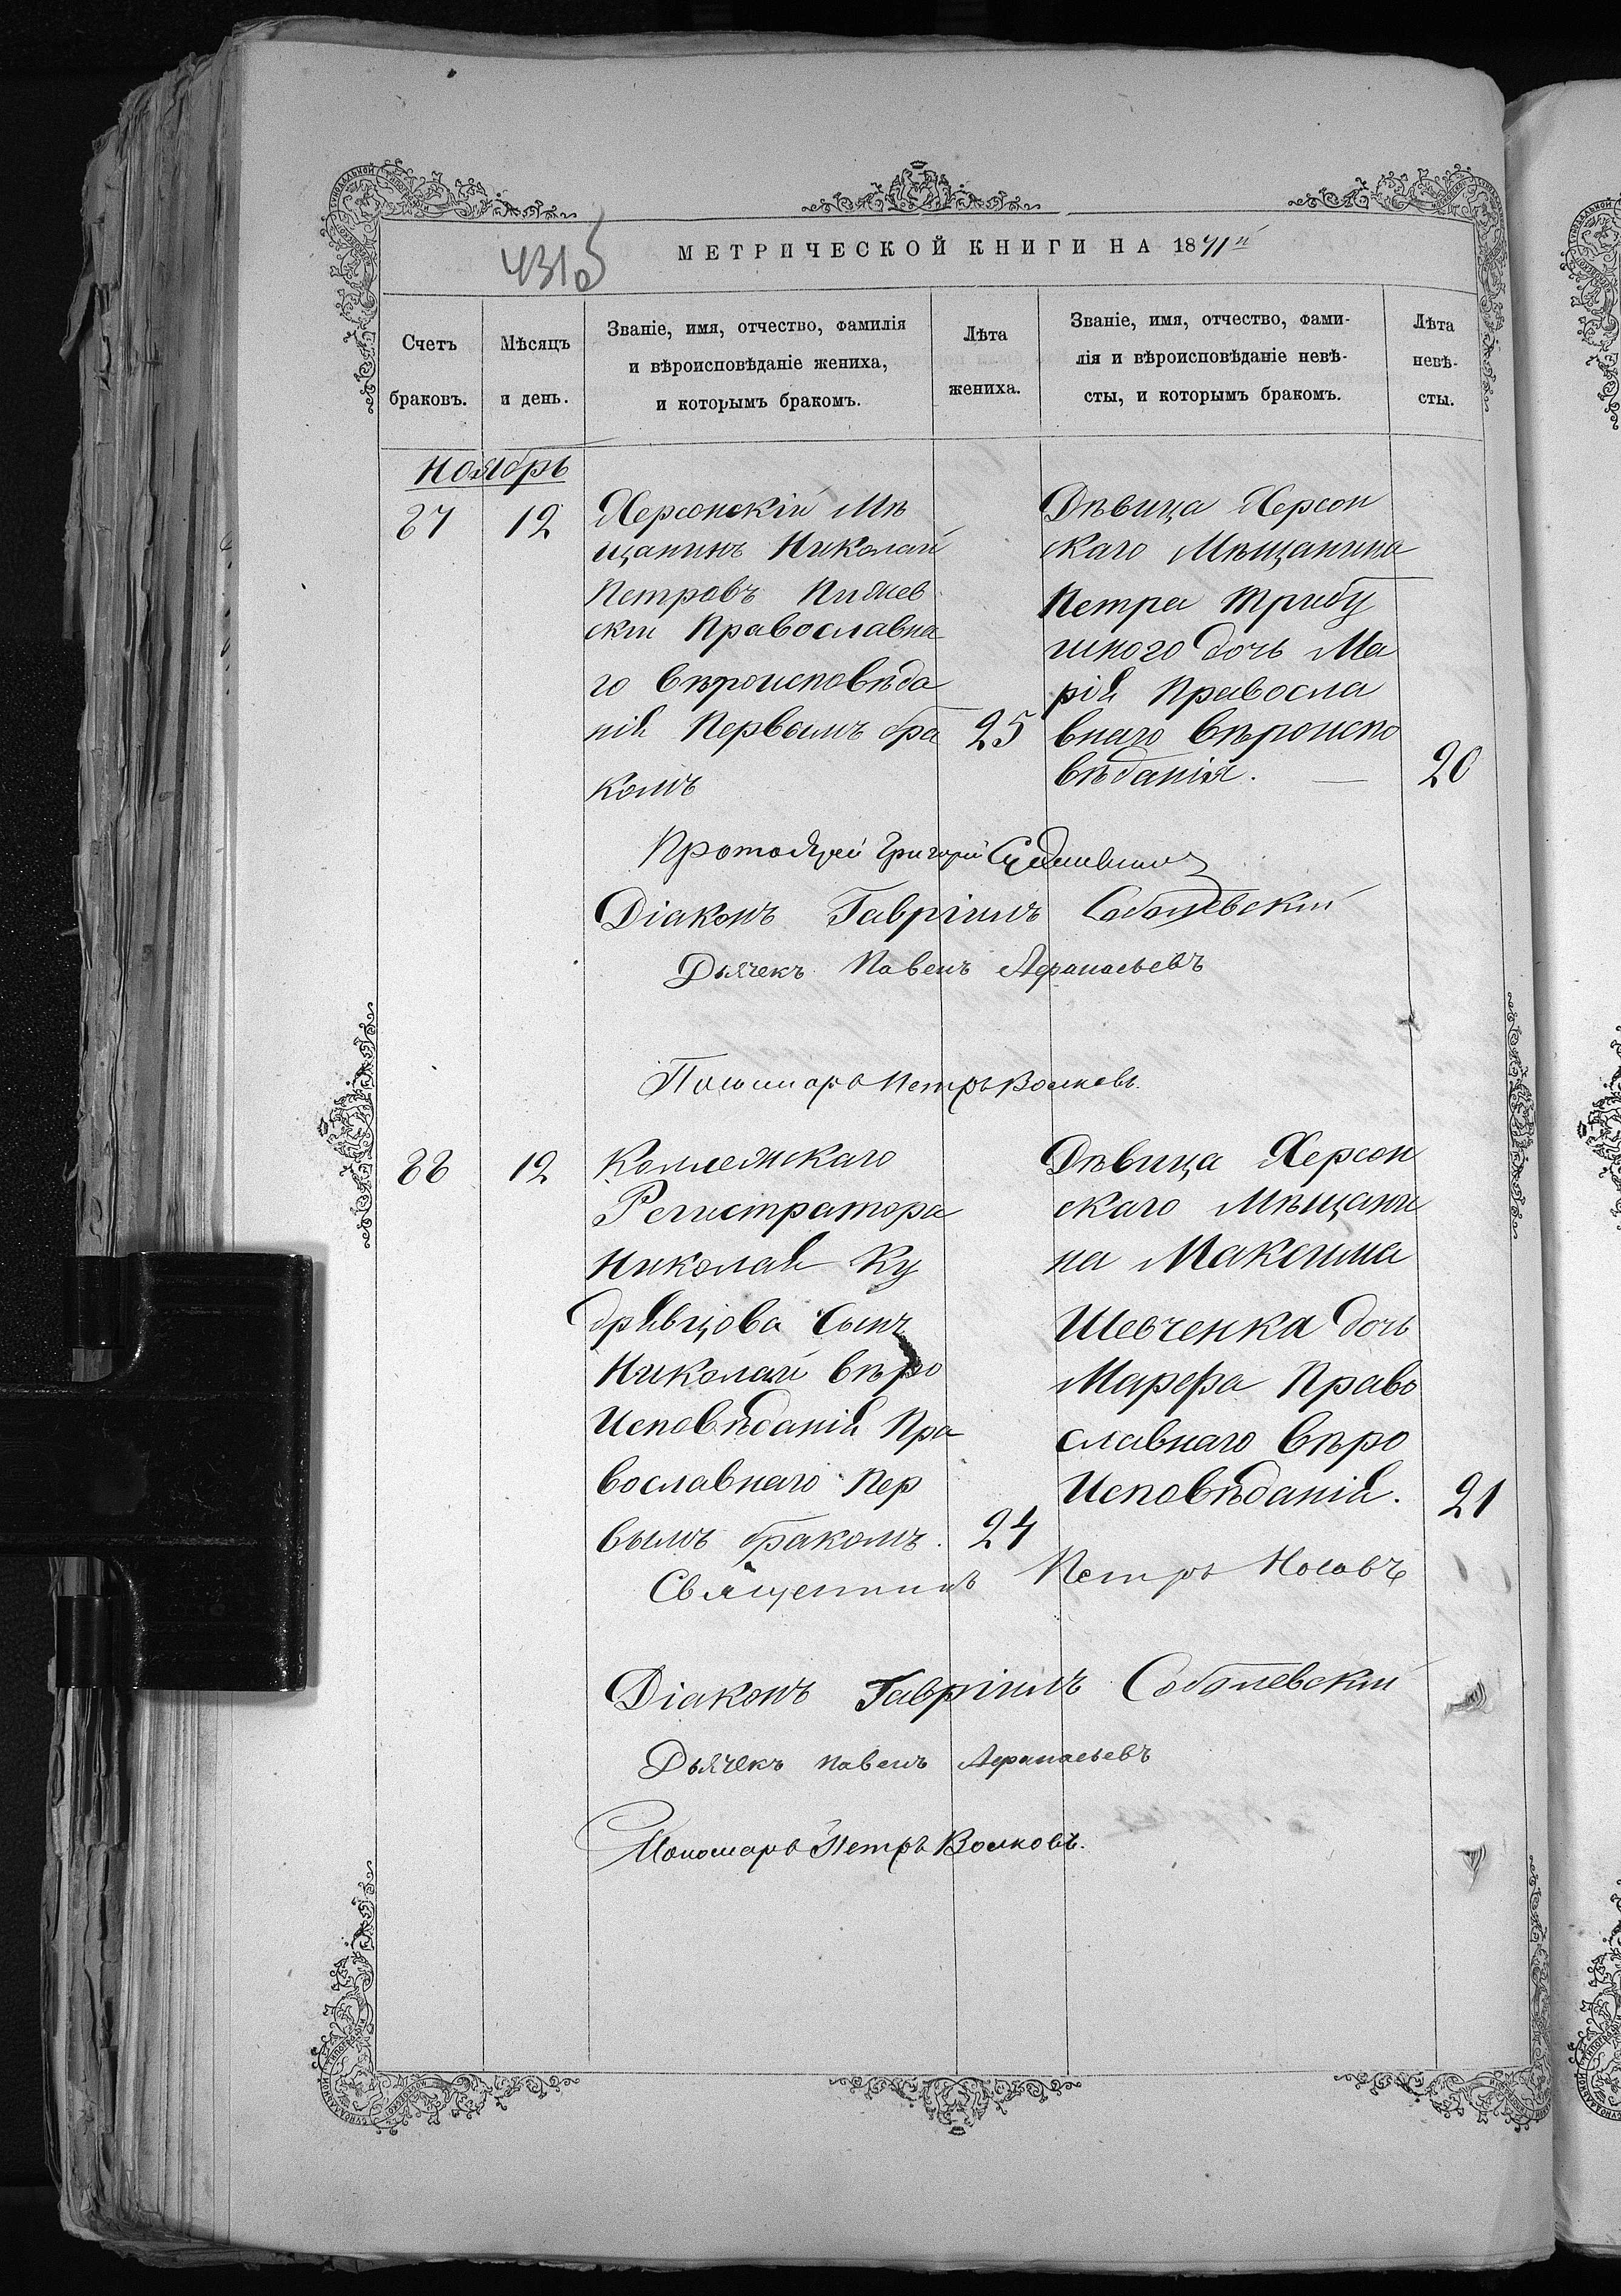 431об
МЕТРИЧЕСКОЙ КНИГИ НА 1871й
Счетъ браковъ.
Мѣсяцъ и день.
Званіе, имя, отчество, фамилія
и вѣроисповѣданіе жениха,
и которымъ бракомъ.
Лѣта жениха.
Званіе, имя, отчество, фами-
лія и вѣроисповѣданіе невѣ-
сты, и которымъ бракомъ.
Лѣта невѣ-
сты.
Ноябрь
87 12
Херсонскій Мѣ
щанинъ Николай
Петровъ
скій Православна
го Вѣроисповѣда
нія Первымъ бра
комъ
25
Дѣвица Херсон
скаго Мѣщанина
Петра Трибу
шного дочь Ма
рія Правосла
внаго Вѣроиспо
вѣданія.
20
Протоіерей Григорій
Діаконъ Гавріилъ Соболевскій
Дьячекъ Павелъ Афанасьевъ
Пономарь Петръ Волковъ.
88 12
Коллежскаго
Регистратора
Николая Ку
дрявцова Сынъ
Николай вѣро
Исповѣданія Пра
вославнаго Пер
вымъ бракомъ.
24
Дѣвица Херсон
скаго Мѣщани
на Максима
Шевченка дочь
Марфа Право
славнаго Вѣро
Исповѣданія.
21
Священникъ Петръ Носовъ
Діаконъ Гавріилъ Соболевскій
Дьячекъ Павелъ Афанасьевъ
Пономарь Петръ Волковъ.